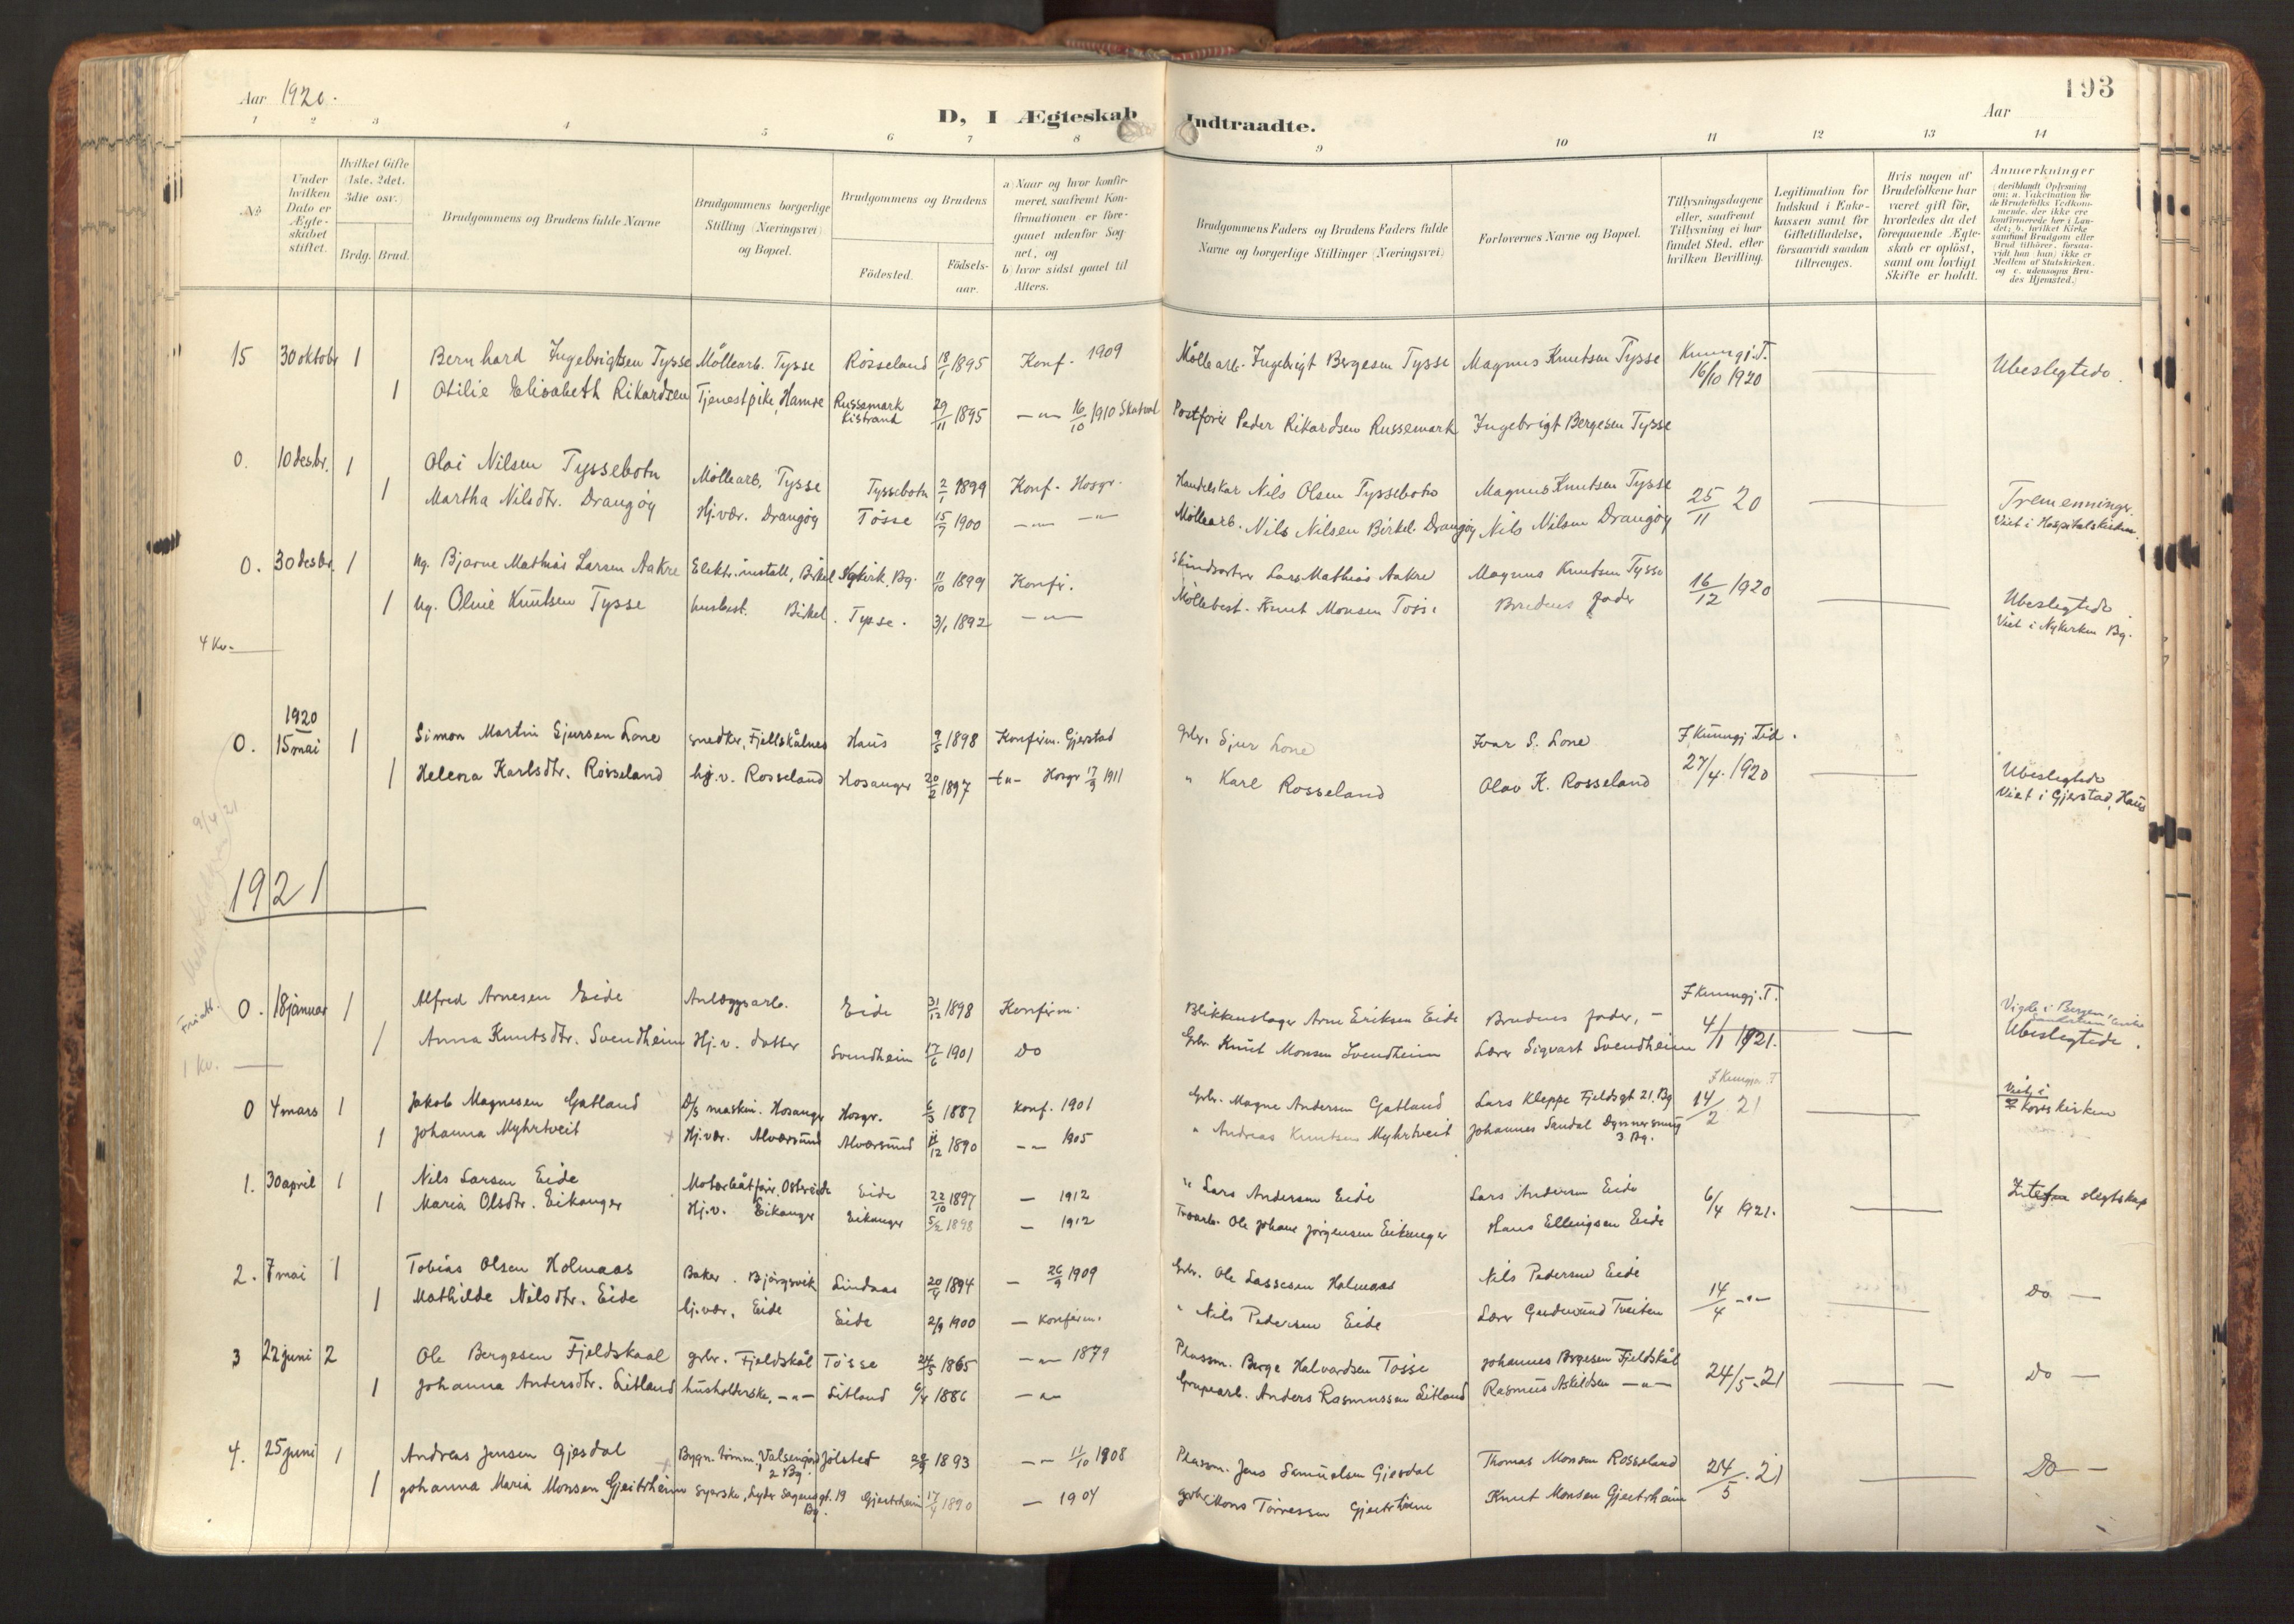 Aar 1920.
D, I Ægteskab Indtraadte.
193
Aar
1 2 3 4 5 6 7 8 9 10 11 12 13 14
No
Under hvilken Dato er Ægteskabet stiftet.
Hvilket Gifte (1ste, 2det, 3die osv.)
Brdg. Brud.
Brudgommens og Brudens fulde Navne
Brudgommens borgerlige Stilling (Næringsvei) og Bopæl.
Brudgommens og Brudens
Födested. Födsels-aar.
a) Naar og hvor konfirmeret, saafremt Konfirmationen er foregaaet udenfor Sognet, og
b) hvor sidst gaaet til Alters.
Brudgommens Faders og Brudens Faders fulde Navne og borgerlige Stillinger (Næringsvei)
Forlovernes Navne og Bopæl.
Tillysningsdagene eller, saafremt Tillysning ei har fundet Sted, efter hvilken Bevilling.
Legitimation for Indskud i Enkekassen samt for Giftetilladelse, forsaavidt saadan tiltrænges.
Hvis nogen af Brudefolkene har været gift för, hvorledes da det foregaaende Ægteskab er oplöst, samt om lovligt Skifte er holdt.
Anmærkninger
(deriblandt Oplysning om: a. Vakcination for de Brudefolks Vedkommende, der ikke ere konfirmerede her i Landet; b. hvilket Kirkesamfund Brudgom eller Brud tilhörer, forsaavidt han (hun) ikke er Medlem af Statskirken, og c. udensogns Brudes Hjemsted.)
15 30 oktobr 1 Bernhard Ingebrigtsen Tysse Möllearb. Tysse Rösseland 18/1 1895 Konf. 1909 Möllearb. Ingebrigt Bergesen Tysse Magnus Knutsen Tysse Kunngj. T. 16/10 1920 Ubeslegtede.
1 Otilie Elisabeth Rikardsen Tjenestpike, Hamre Russemark Kistrand 29/11 1895 -"- 16/10 1910 Postförer Peder Rikardsen Russemark Ingebrigt Bergesen Tysse
0. 10 desbr. 1 Olai Nilsen Tyssebotn Möllearb. Tysse Tyssebotn 2/1 1899 Konf. Hosgr. Handelskar Nils Olsen Tyssebotn Magnus Knutsen Tysse 25/11 20 Tremenninger.
1 Martha Nilsdtr. Drangöy Hj.vær. Drangöy Tösse 15/7 1900 -"- -"- Möllearb. Nils Nilsen Birkel. Drangöy Nils Nilsen Drangöy Viet i Hospitalskirken.
0. 30 desbr. 1 Ug. Bjarne Mathias Larsen Aakre Elektr. install, Birkel. Nykirk. Bg. 11/10 1899 Konfir. Lars Mathias Aakre Magnus Knutsen Tysse 16/12 1920 Ubeslegtede.
1 Ug. Oline Knutsen Tysse husbest. Birkel. Tysse. 3/1 1892 -"- Möllebest. Knut Monsen Tösse Brudens fader Viet i Nykirken Bg.
4 Kv.
1920
0. 15 mai 1 Simon Martin Sjursen Lone snedker, Fjellskålnes Haus 9/5 1898 Konfirm. Gjerstad Gbr. Sjur Lone Ivar S. Lone F. Kunngj Tid. 27/4. 1920 Ubeslegtede
1 Helena Karlsdtr. Rösseland hj.v. Rosseland Hosanger 20/2 1897 -"- Hosgr 17/9 1911 " Karl Rosseland Olav K. Rosseland Viet i Gjerstad, Haus
9/4 21
1921
0. 18 januar 1 Alfred Arnesen Eide Anlæggsarb. Eide 31/12 1898 Konfirm. Blikkenslager Arne Eriksen Eide Brudens fader, - F Kunngj. T. 4/1 1921. Vigde i Bergen,
1 Anna Knutsdtr. Svendheim Hj.v. datter Svendheim 17/6 1901 Do Gbr. Knut Monsen Svendheim Lærer Sigvart Svendheim Ubeslegtede.
1 Kv.
0 4 mars 1 Jakob Magnesen Gatland D/s maskin. Hosanger Hosgr. 6/3 1887 Konf. 1901 Gbr. Magne Andersen Gatland Lars Kleppe Fjeldsgt 21. Bg F Kunngj. T 14/2 21 Viet i Korskirken
1 Johanna Myhrtveit Hj.vær. Alversund Alversund 11/12 1890 -"- 1905 " Andreas Knutsen Myhrtveit Johannes Sandal 3 Bg.
1. 30 april 1 Nils Larsen Eide Motorbåtförer. Ostereide Eide 22/10 1897 - 1912 " Lars Andersen Eide Lars Andersen Eide 6/4 1921. Intet slegtskap
1 Maria Olsdtr. Eikanger Hj.v. Eikanger Eikanger 5/2 1898 - 1912 Ole Johan Jörgensen Eikanger Hans Ellingsen Eide
2. 7 mai 1 Tobias Olsen Holmaas Baker. Bjørgsvik Lindaas 20/4 1894 - 26/9 1909 Gbr. Ole Lassesen Holmaas Nils Pedersen Eide 14/4 -"- Do -
1 Mathilde Nilsdtr. Eide hj.vær, Eide Eide 2/9 1900 - Konfirm. " Nils Pedersen Eide Lærer Gudmund Tveiten
3 22 juni 2 Ole Bergesen Fjeldskaal gbr. Fjeldskål Tösse 24/5 1865 -"- 1879 Plassm. Berge Halvardsen Tösse Johannes Brgesen Fjeldskål 24/5. 21 Do -
1 Johanna Andersdtr. Litland husholderske, -"- Litland 6/4 1886 -"- Grupearb. Anders Rasmussen Litland Rasmus Askildsen -"-
4. 25 juni 1 Andreas Jensen Gjesdal Bygn. tömm. Valsengård 2 Bg. Jölster 28/9 1893 -"- 11/10 1908 Plassm. Jens Samuelsen Gjesdal Thomas Monsen Rosseland 24/5. 21 Do -
1 Johanna Maria Monsen Gjeitrheim Syerske, Lyder Sagens gt. 19 Bg. Gjeitrheim 17/4 1890 - 1904 gbr. Mons Torressen Gjeitrheim Knut Monsen Gjeitrheim